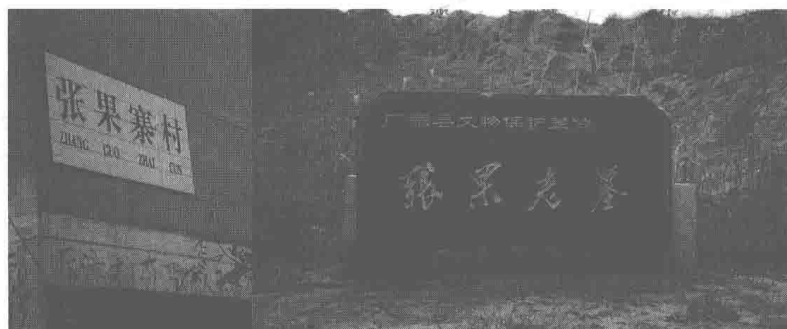 张果寨村
ZHANG GUO ZHAI CUN
广宗县文物保护单位
張果老墓